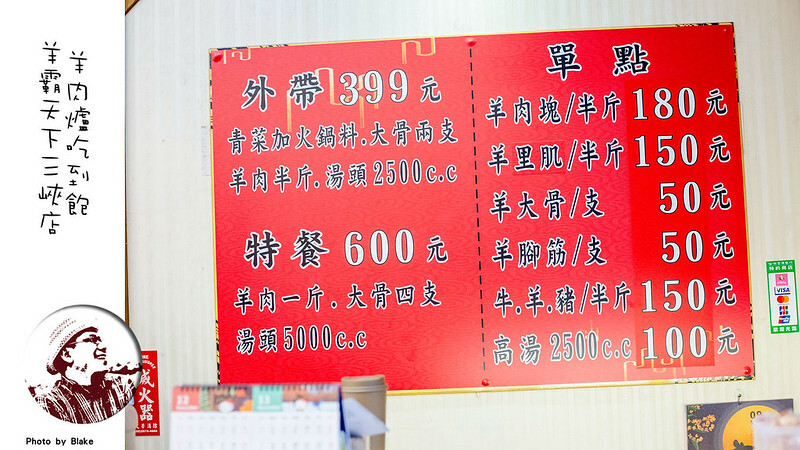 羊肉爐吃到飽
羊霸天下三峽店
外帶399元
青菜加火鍋料.大骨兩支
羊肉半斤.湯頭2500c.c
特餐600元
羊肉一斤.大骨四支
湯頭5000c.c
單點
羊肉塊/半斤180元
羊里肌/半斤150元
羊大骨/支50元
羊腳筋/支50元
牛.羊.豬/半斤150元
高湯2500c.c100元
VISA
JCB
滅火器
12
11
09
Photo by Blake